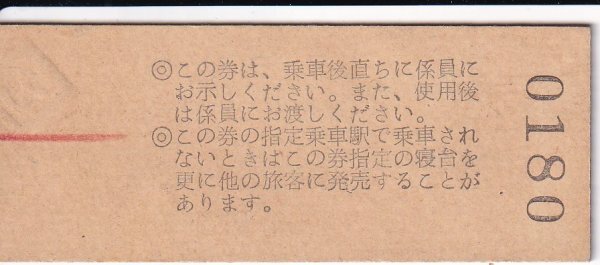 ◎この券は、乗車後直ちに係員に
お示しください。また、使用後
は係員にお渡しください。
◎この券の指定乗車駅で乗車され
ないときはこの券指定の寝台を
更に他の旅客に発売することが
あります。
0180